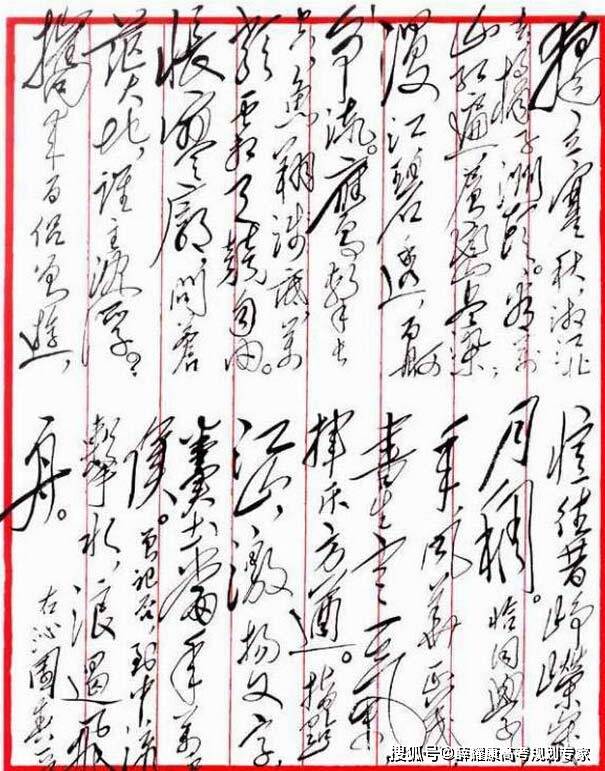 獨立寒秋，湘江北
去，橘子洲头。看万
山红遍，层林尽染；
漫江碧透，百舸
争流。鹰击长
空，鱼翔浅底，万
类霜天竞自由。
怅寥廓，问苍
茫大地，谁主沉浮？
携来百侣曾游，
忆往昔峥嵘岁
月稠。恰同学少
年，风华正茂；
书生意气，
挥斥方遒。指点
江山，激扬文字，
粪土当年万户
侯。曾记否，到中流
击水，浪遏飞
舟。
右沁园春一
搜狐号@薛耀康高考规划专家